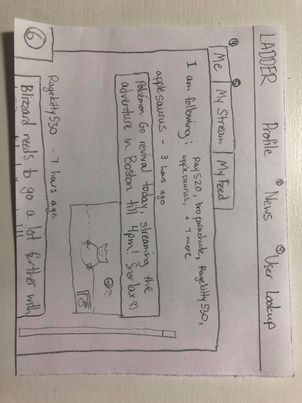 LADDER Profile News User Lookup
Me My Stream My Feed
I am following: Ray520, broparachute, Ragekitty530,
applesaurus, + 7 more
applesaurus - 3 hours ago
Pokémon Go revival today, streaming the
adventure in Boston till 4pm! Snorlax ♡
Ragekitty530 - 7 hours ago
6
Blizzard needs to go a lot further with